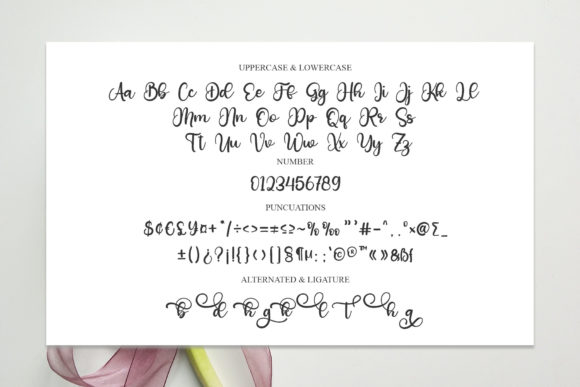 UPPERCASE & LOWERCASE
Aa Bb Cc Dd Ee Ff Gg Hh Ii Jj Kk Ll
Mm Nn Oo Pp Qq Rr Ss
Tt Uu Vv Ww Xx Yy Zz
NUMBER
0123456789
PUNCUATIONS
$¢€£¥¤+*/÷<>=±≤≥~%‰"'#-^..°×@Σ_
±()¿?¡!{}()[]§¶µ:;'©®™«»&ß{
ALTERNATED & LIGATURE
b d h g k l T h g